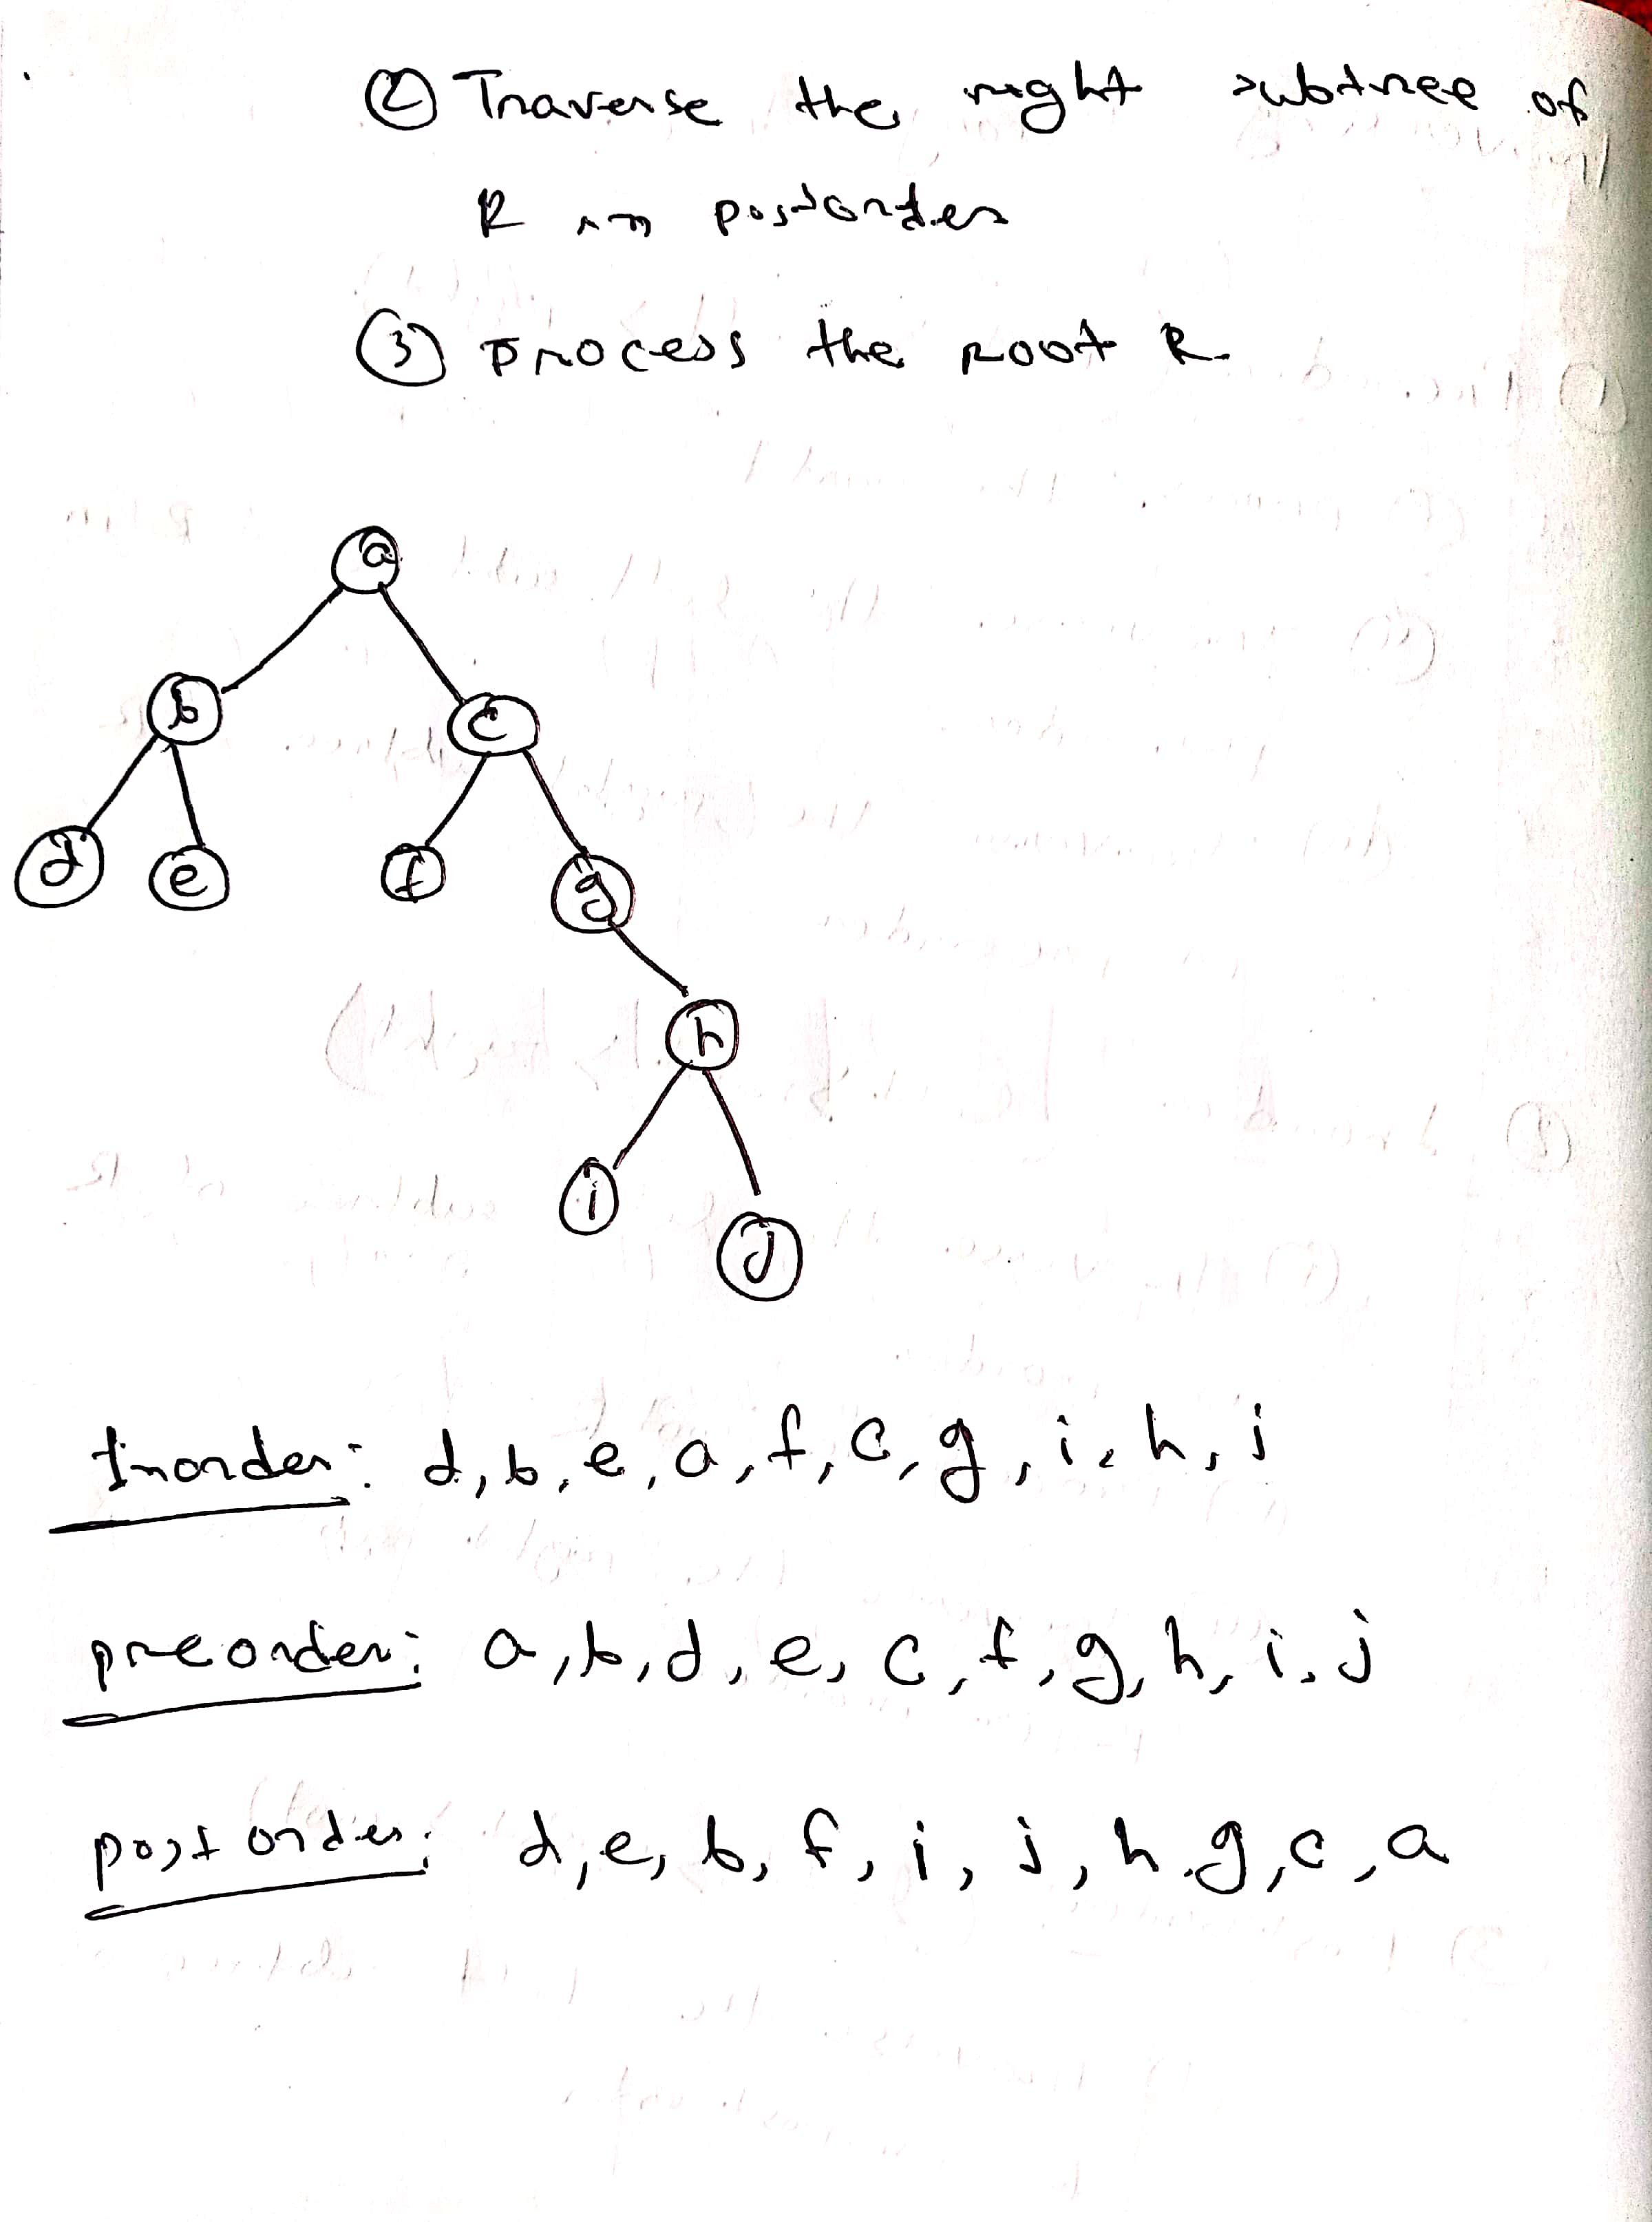 ② Traverse the right subtree of
R in postorder
③ process the root R.
a
b c
d e f g
h
i
j
Inorder: d, b, e, a, f, c, g, i, h, j
preorder: a, b, d, e, c, f, g, h, i, j
post order: d, e, b, f, i, j, h, g, c, a